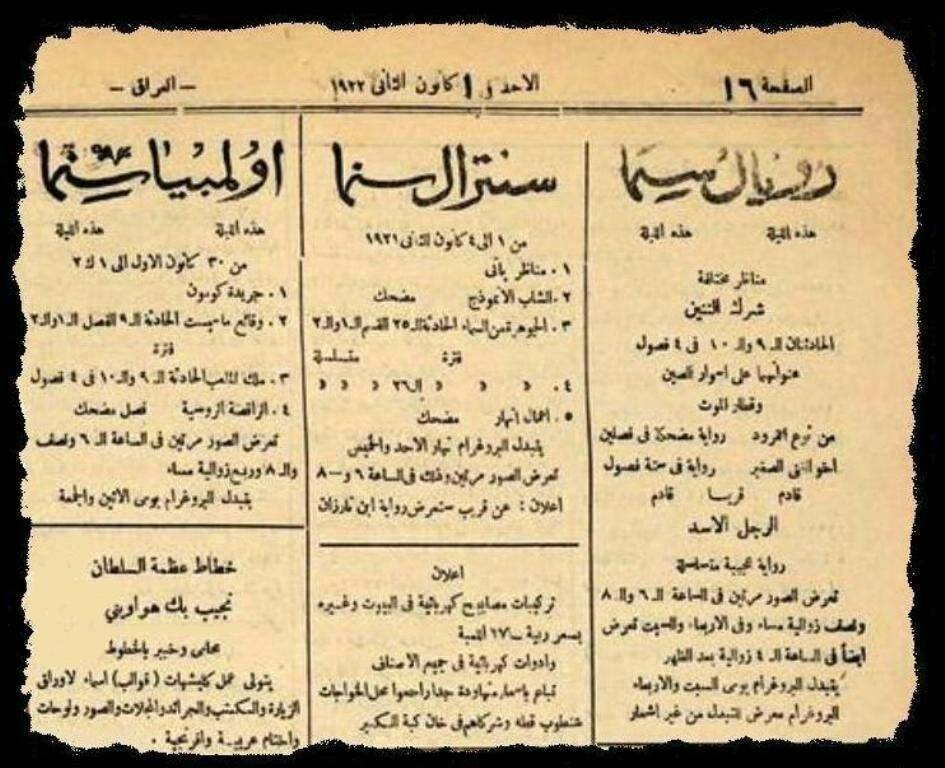 الصفحة ١٦
الاحد في ١ كانون الثاني ١٩٢٢
— العراق —
رويال سينما
هذه الليلة هذه الليلة
مناظر مختلفة
شرك التنين
الحادثتان الـ ٩ والـ ١٠ فى ٤ فصول
عنوانهما على اسوار الصين
وقطار الموت
من نوع القرود رواية مضحكة فى فصلين
اخو الفتى الصغير رواية فى ستة فصول
قادم قريبا قادم
الرجل الاسد
رواية عجيبة متسلسلة
تعرض الصور مرتين فى الساعة الـ ٦ والـ ٨
ونصف زوالية مساء وفى الاربعاء والسبت تعرض
ايضاً فى الساعة الـ ٤ زوالية بعد الظهر
يتبدل البروغرام يومى السبت والاربعاء
البروغرام معرض للتبدل من غير اشعار
سنترال سنما
من ١ الى ٤ كانون الثانى ١٩٢١
١ . مناظر ياتى
٢ . الشاب الانموذج مضحك
٣ . الجوهرة من السماء الحادثة الـ ٢٥ القسم الـ ١ والـ ٢
فترة متسلسلة
٤ . « « « الـ ٢٦ « « «
٥ . اعمال انهار مضحك
يتبدل البروغرام نهار الاحد والخميس
تعرض الصور مرتين وذلك فى الساعة ٦ و — ٨
اعلان : عن قريب ستعرض رواية ابن تارزان
اعلان
تركيبات مصابيح كهربائية فى البيوت وغيره
بسعر ربية — ١٧ القسبة
وادوات كهربائية فى جميع الاصناف
تباع باسعار متهاودة جدا راجعوا محل الخواجات
شنطوب قطه وشركاهم فى خان كبة الكبير
اولمبيا سينما
هذه الليلة هذه الليلة
من ٣٠ كانون الاول الى ١ ك ٢
١ . جريدة كومون
٢ . وقائع ماجيست الحادثة الـ ٩ الفصل الـ ١ والـ ٢
فترة
٣ . ملك الملعب الحادثة الـ ٩ والـ ١٠ فى ٤ فصول
٤ . الراقصة الروسية فصل مضحك
تعرض الصور مرتين فى الساعة الـ ٦ ونصف
والـ ٨ وربع زوالية مساء
يتبدل البروغرام يومى الاثنين والجمعة
خطاط عظمة السلطان
نجيب بك هواويني
محامى وخبير بالخطوط
يتولى عمل كليشيهات ( قوالب ) اسماء لاوراق
الزيارة والمكتب والجرائد والمجلات والصور ولوحات
واختام عربية وافرنجية .